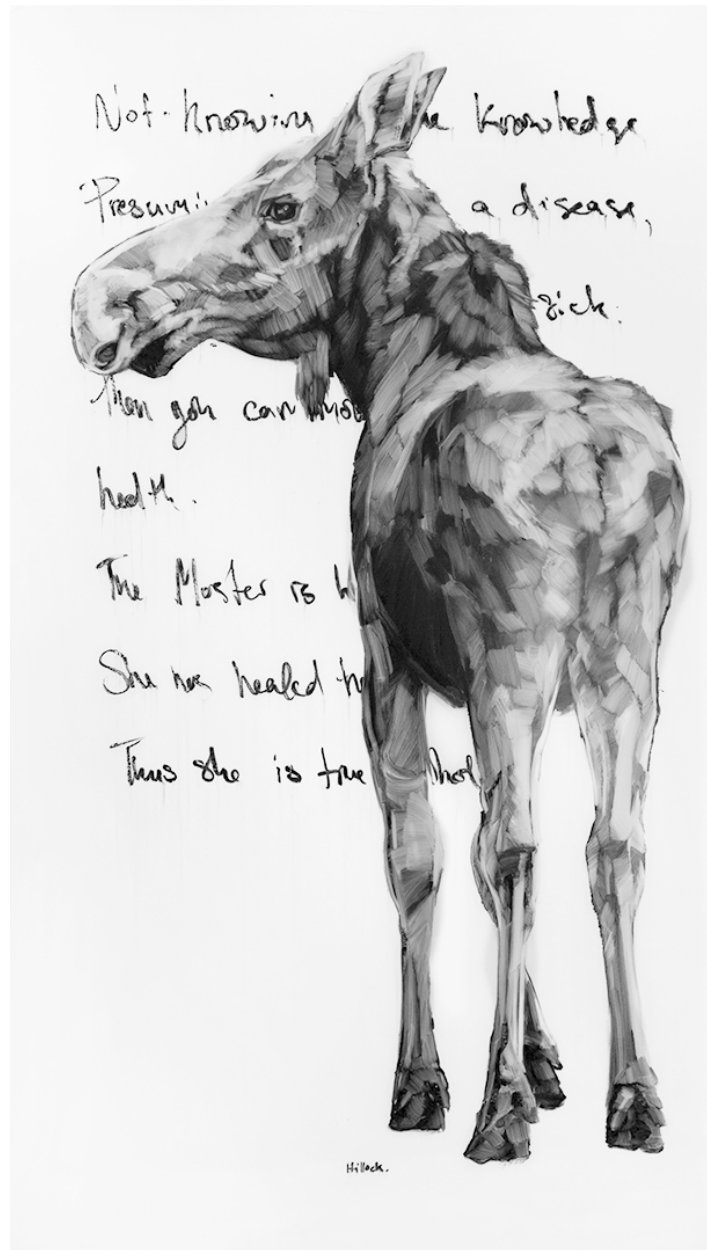 Not-knowing knowledge
Presumi a disease,
sick.
Then you can
health.
The Master is
She has healed
Thus she is true
Hillock.